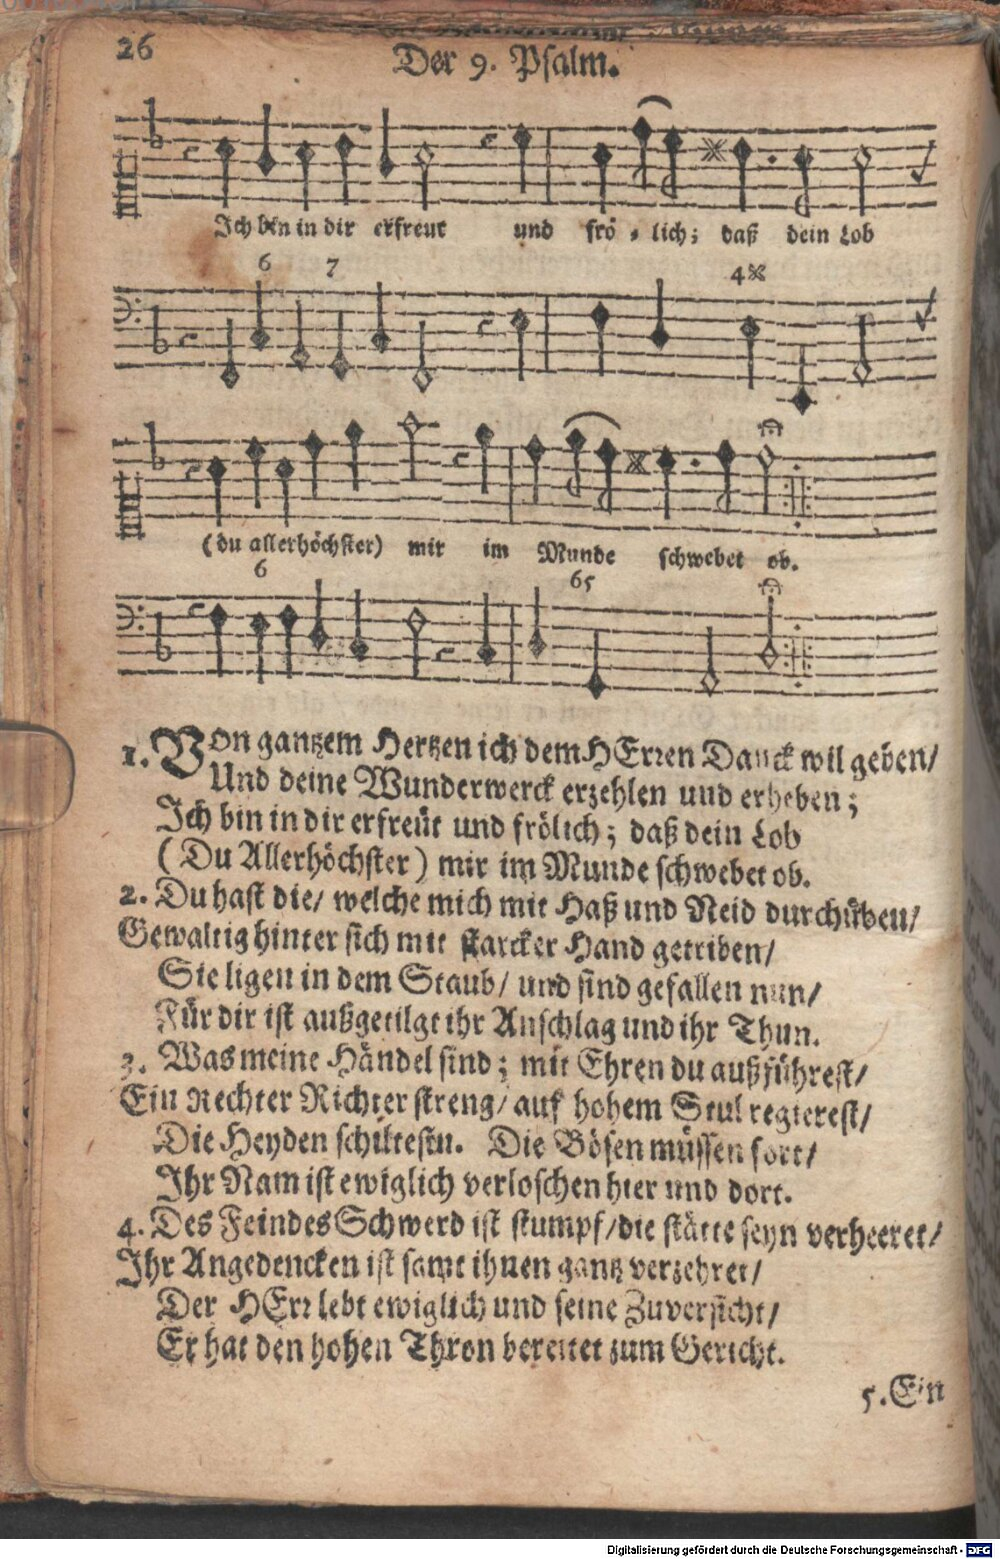 26
Der 9. Psalm.
Ich bin in dir erfreut und frö - lich; daß dein Lob
6 7 4
(du allerhöchster) mir im Munde schwebet ob.
6 65
1. Von gantzem Hertzen ich dem HErren Danck wil geben/
Und deine Wunderwerck erzehlen und erheben;
Ich bin in dir erfreüt und frölich; daß dein Lob
(Du Allerhöchster) mir im Munde schwebet ob.
2. Du hast die/ welche mich mit Haß und Neid durchüben/
Gewaltig hinter sich mit starcker Hand getriben/
Sie ligen in dem Staub/ und sind gefallen nun/
Für dir ist außgetilgt ihr Anschlag und ihr Thun.
3. Was meine Händel sind; mit Ehren du außführest/
Ein Rechter Richter streng/ auf hohem Stul regierest/
Die Heyden schiltestu. Die Bösen müssen fort/
Ihr Nam ist ewiglich verloschen hier und dort.
4. Des Feindes Schwerd ist stumpf/die stätte seyn verheeret/
Ihr Angedencken ist samt ihnen gantz verzehret/
Der HErr lebt ewiglich und seine Zuversicht/
Er hat den hohen Thron bereitet zum Gericht.
5. Ein
Digitalisierung gefördert durch die Deutsche Forschungsgemeinschaft - DFG